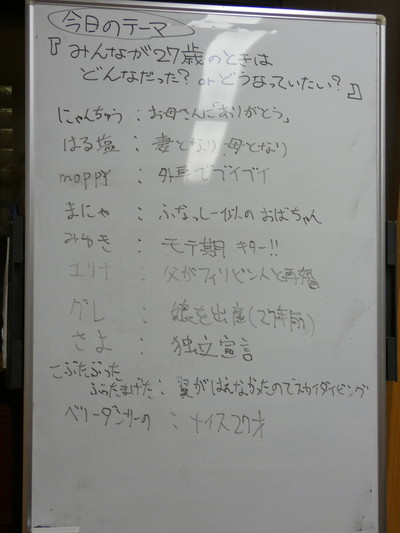 今日のテーマ
『みんなが27歳のときは
どんなだった? orどうなっていたい?』
にゃんちゅう:お母さんに「ありがとう」
はる塩:妻となり、母となり
moppy:外車でブイブイ
まにゃ:ふなっしー似のおばちゃん
みゆき:モテ期 キター!!
ユリナ:父がフィリピン人と再婚
グレ:娘を出産(27年前)
さよ:独立宣言
こぶたぶった
ふったまげた:翼がはえなかったのでスカイダイビング
ベリーダンサーの:ナイス27才